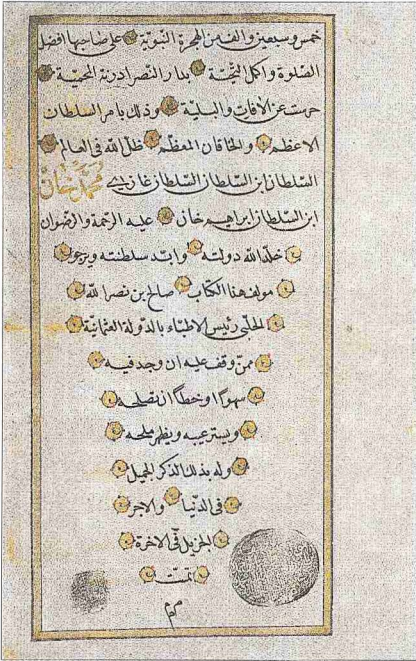 خمس وسبعين والف من الهجرة النبوية على صاحبها افضل
الصلوة واكمل التحية بدار النصر ادرنة المحمية
حرست عن الافات والبلية وذلك بامر السلطان
الاعظم والخاقان المعظم ظل الله في العالم
السلطان ابن السلطان السلطان غازي محمد خان
ابن السلطان ابراهيم خان عليه الرحمة والرضوان
خلد الله دولته وابد سلطنته ويرجو
مولف هذا الكتاب صالح بن نصر الله
الحلبي رئيس الاطباء بالدولة العثمانية
ممن وقف عليه ان وجد فيه
سهوًا او خطأ ان يصلحه
ويستر عيبه ويظهر ملحه
وله بذلك الذكر الجميل
في الدنيا والاجر
الجزيل في الاخرة
تمت
م